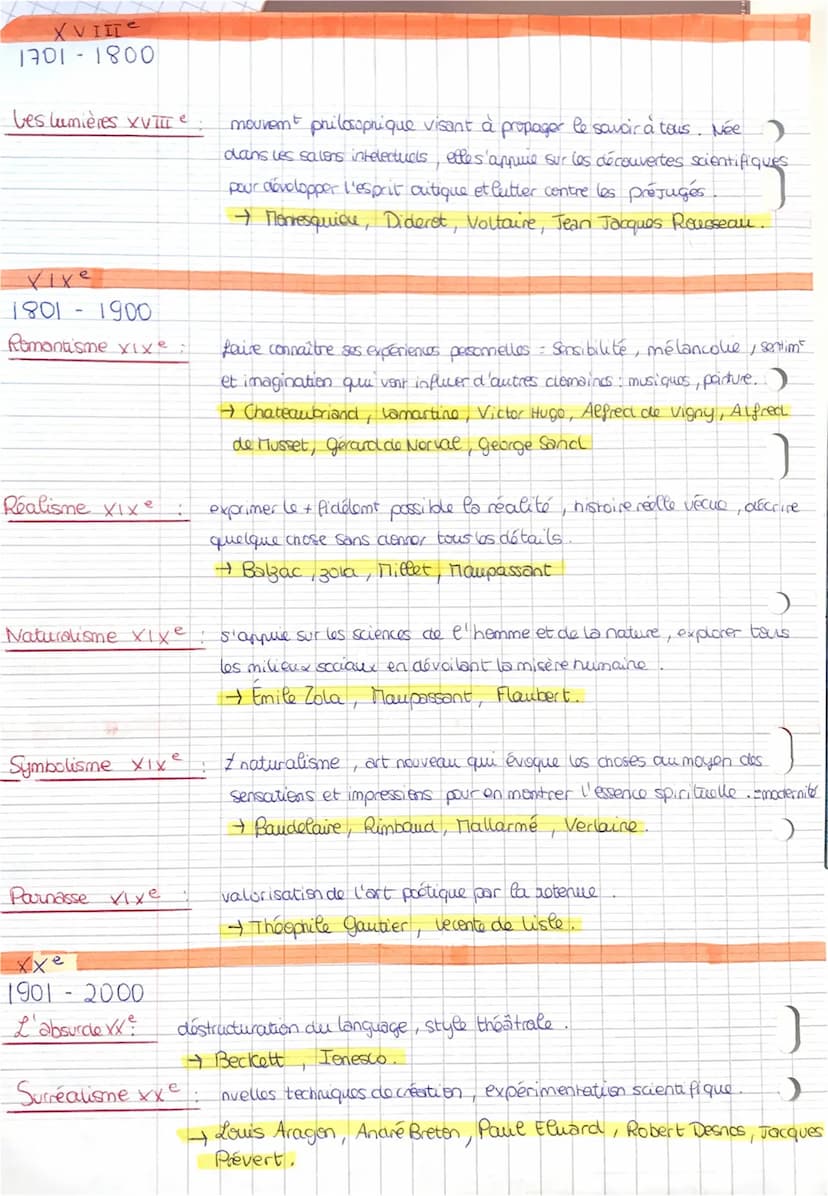 XVIIIe
1701 - 1800
Les lumières XVIIIe : mouvemt philosophique visant à propager le savoir à tous. Née
dans les salons intelectuels, elle s'appuie sur les découvertes scientifiques
pour développer l'esprit critique et lutter contre les préjugés.
→ Montesquieu, Diderot, Voltaire, Jean Jacques Rousseau.
XIXe
1801 - 1900
Romantisme XIXe : faire connaître ses expériences personnelles = sensibilité, mélancolie, sentimt
et imagination qui vont influer d'autres domaines : musiques, peinture.
→ Chateaubriand, Lamartine, Victor Hugo, Alfred de Vigny, Alfred
de Musset, Gérard de Nerval, George Sand
Réalisme XIXe : exprimer le + fidèlemt possible la réalité, histoire réelle vécue, décrire
quelque chose sans donner tous les détails.
→ Balzac, Zola, Millet, Maupassant
Naturalisme XIXe : s'appuie sur les sciences de l'homme et de la nature, explorer tous
les milieux sociaux en dévoilant la misère humaine.
→ Émile Zola, Maupassant, Flaubert.
Symbolisme XIXe : ≠ naturalisme, art nouveau qui évoque les choses au moyen des
sensations et impressions pour en montrer l'essence spirituelle. = modernité
→ Baudelaire, Rimbaud, Mallarmé, Verlaine.
Parnasse XIXe : valorisation de l'art poétique par la retenue.
→ Théophile Gautier, Leconte de Lisle.
XXe
1901 - 2000
L'absurde XXe : déstructuration du language, style théâtrale.
→ Beckett, Ionesco.
Surréalisme XXe : nvelles techniques de création, expérimentation scientifique.
→ Louis Aragon, André Breton, Paul Eluard, Robert Desnos, Jacques
Prévert.